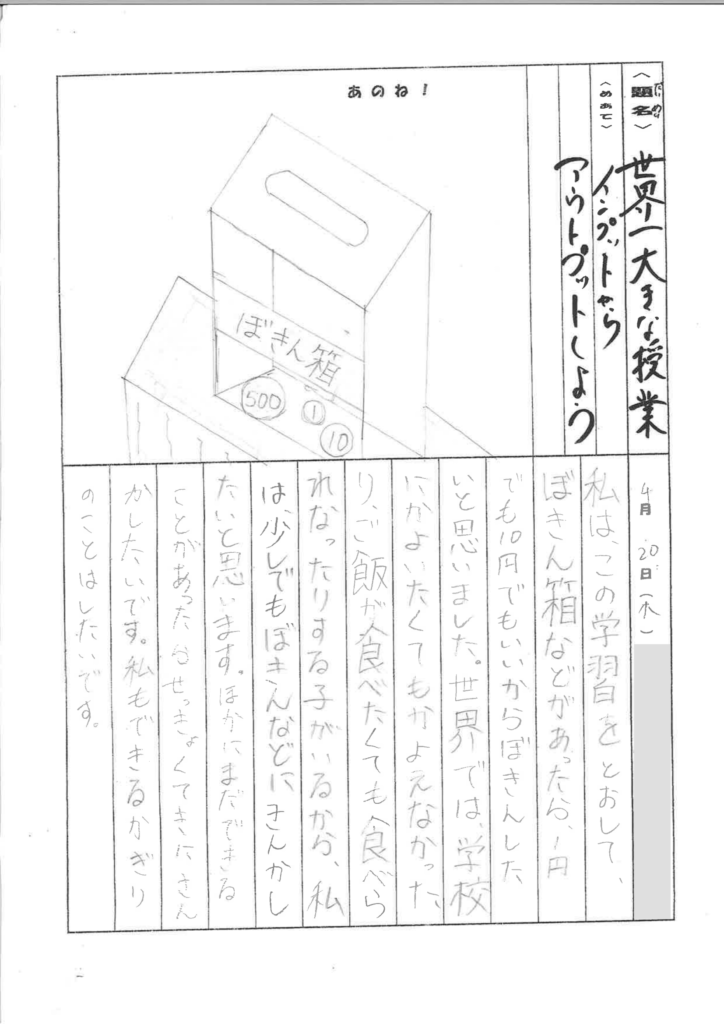 〈題名〉世界一大きな授業
〈めあて〉インプットから
アウトプットしよう
あのね！
ぼきん箱
500
1
10
4月20日（木）
私は、この学習をとおして、
ぼきん箱などがあったら、1円
でも10円でもいいからぼきんした
いと思いました。世界では、学校
にかよいたくてもかよえなかった
り、ご飯が食べたくても食べら
れなったりする子がいるから、私
は、少しでもぼきんなどにさんかし
たいと思います。ほかにまだできる
ことがあったらせっきょくてきにさん
かしたいです。私もできるかぎり
のことはしたいです。